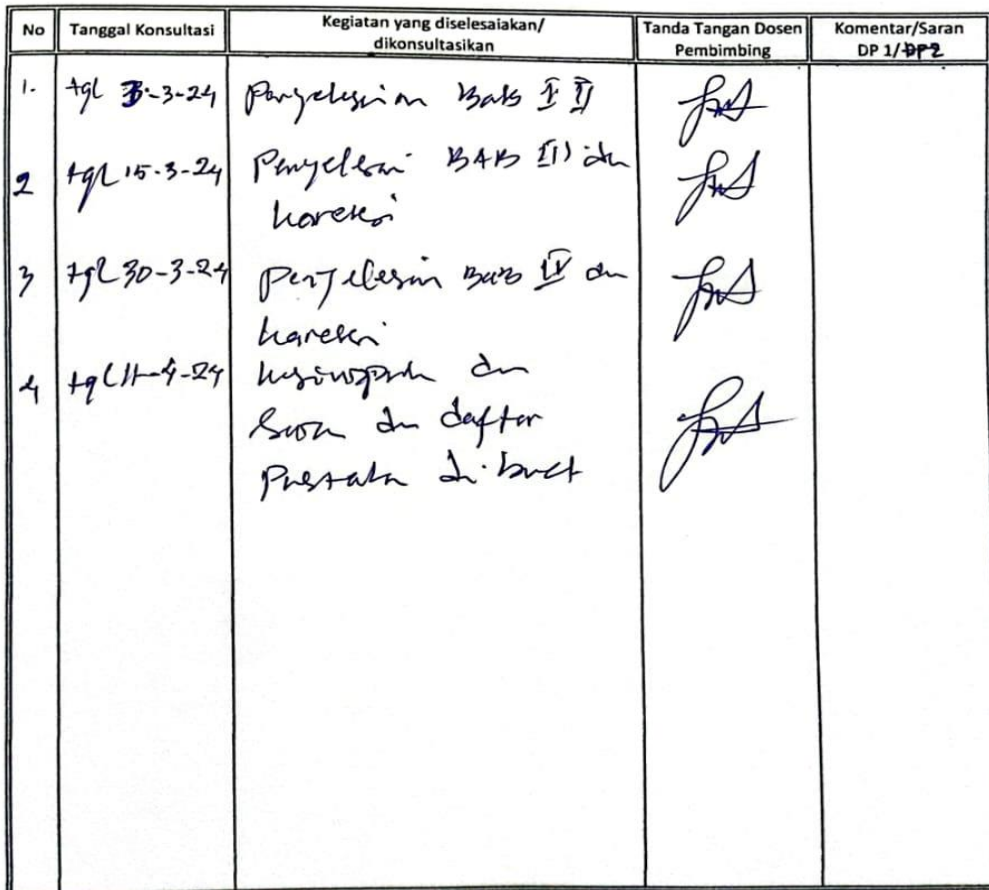 No Tanggal Konsultasi Kegiatan yang diselesaiakan/ dikonsultasikan Tanda Tangan Dosen Pembimbing Komentar/Saran DP 1/DP2
1. tgl 3-3-24 Penyelesian Bab I II
2 tgl 15-3-24 Penyelesai BAB III dn
koreksi
3 tgl 30-3-24 Penyelesin Bab IV dn
koreksi
4 tgl 11-4-24 kesimpulan dn
Saran dn daftar
Pustaka di buat